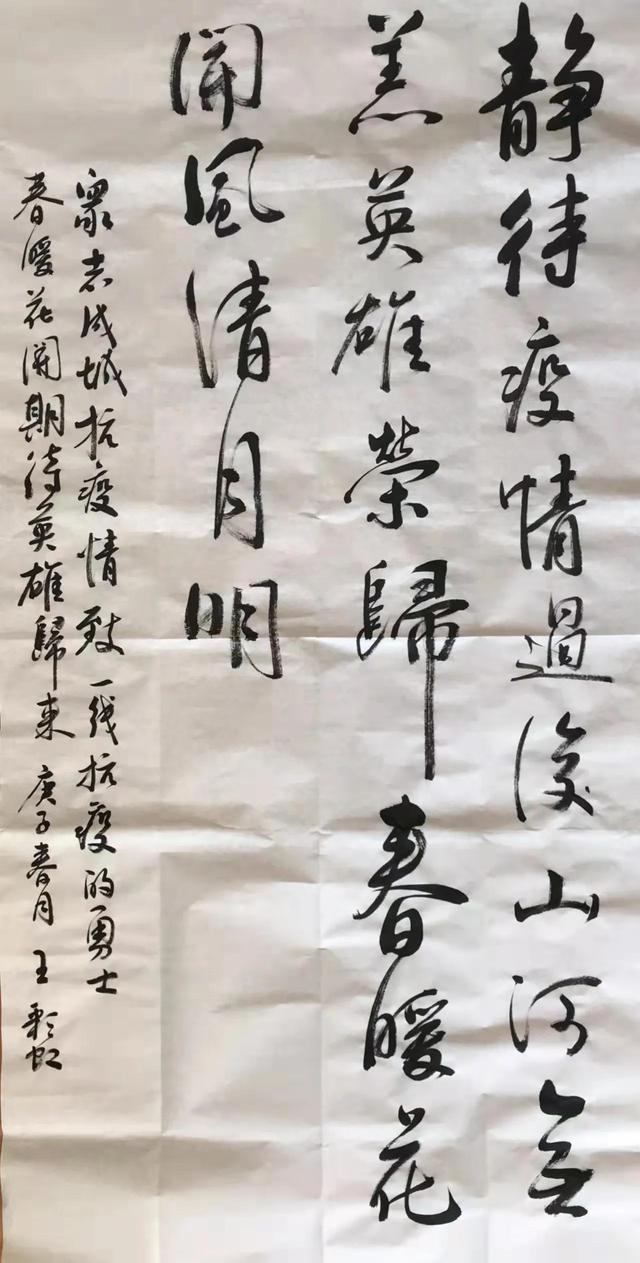 静待疫情過後山河無
恙英雄榮歸春暖花
開風清月明
眾志成城抗疫情致一线抗疫的勇士
春暖花開期待英雄歸来庚子春月王彩虹